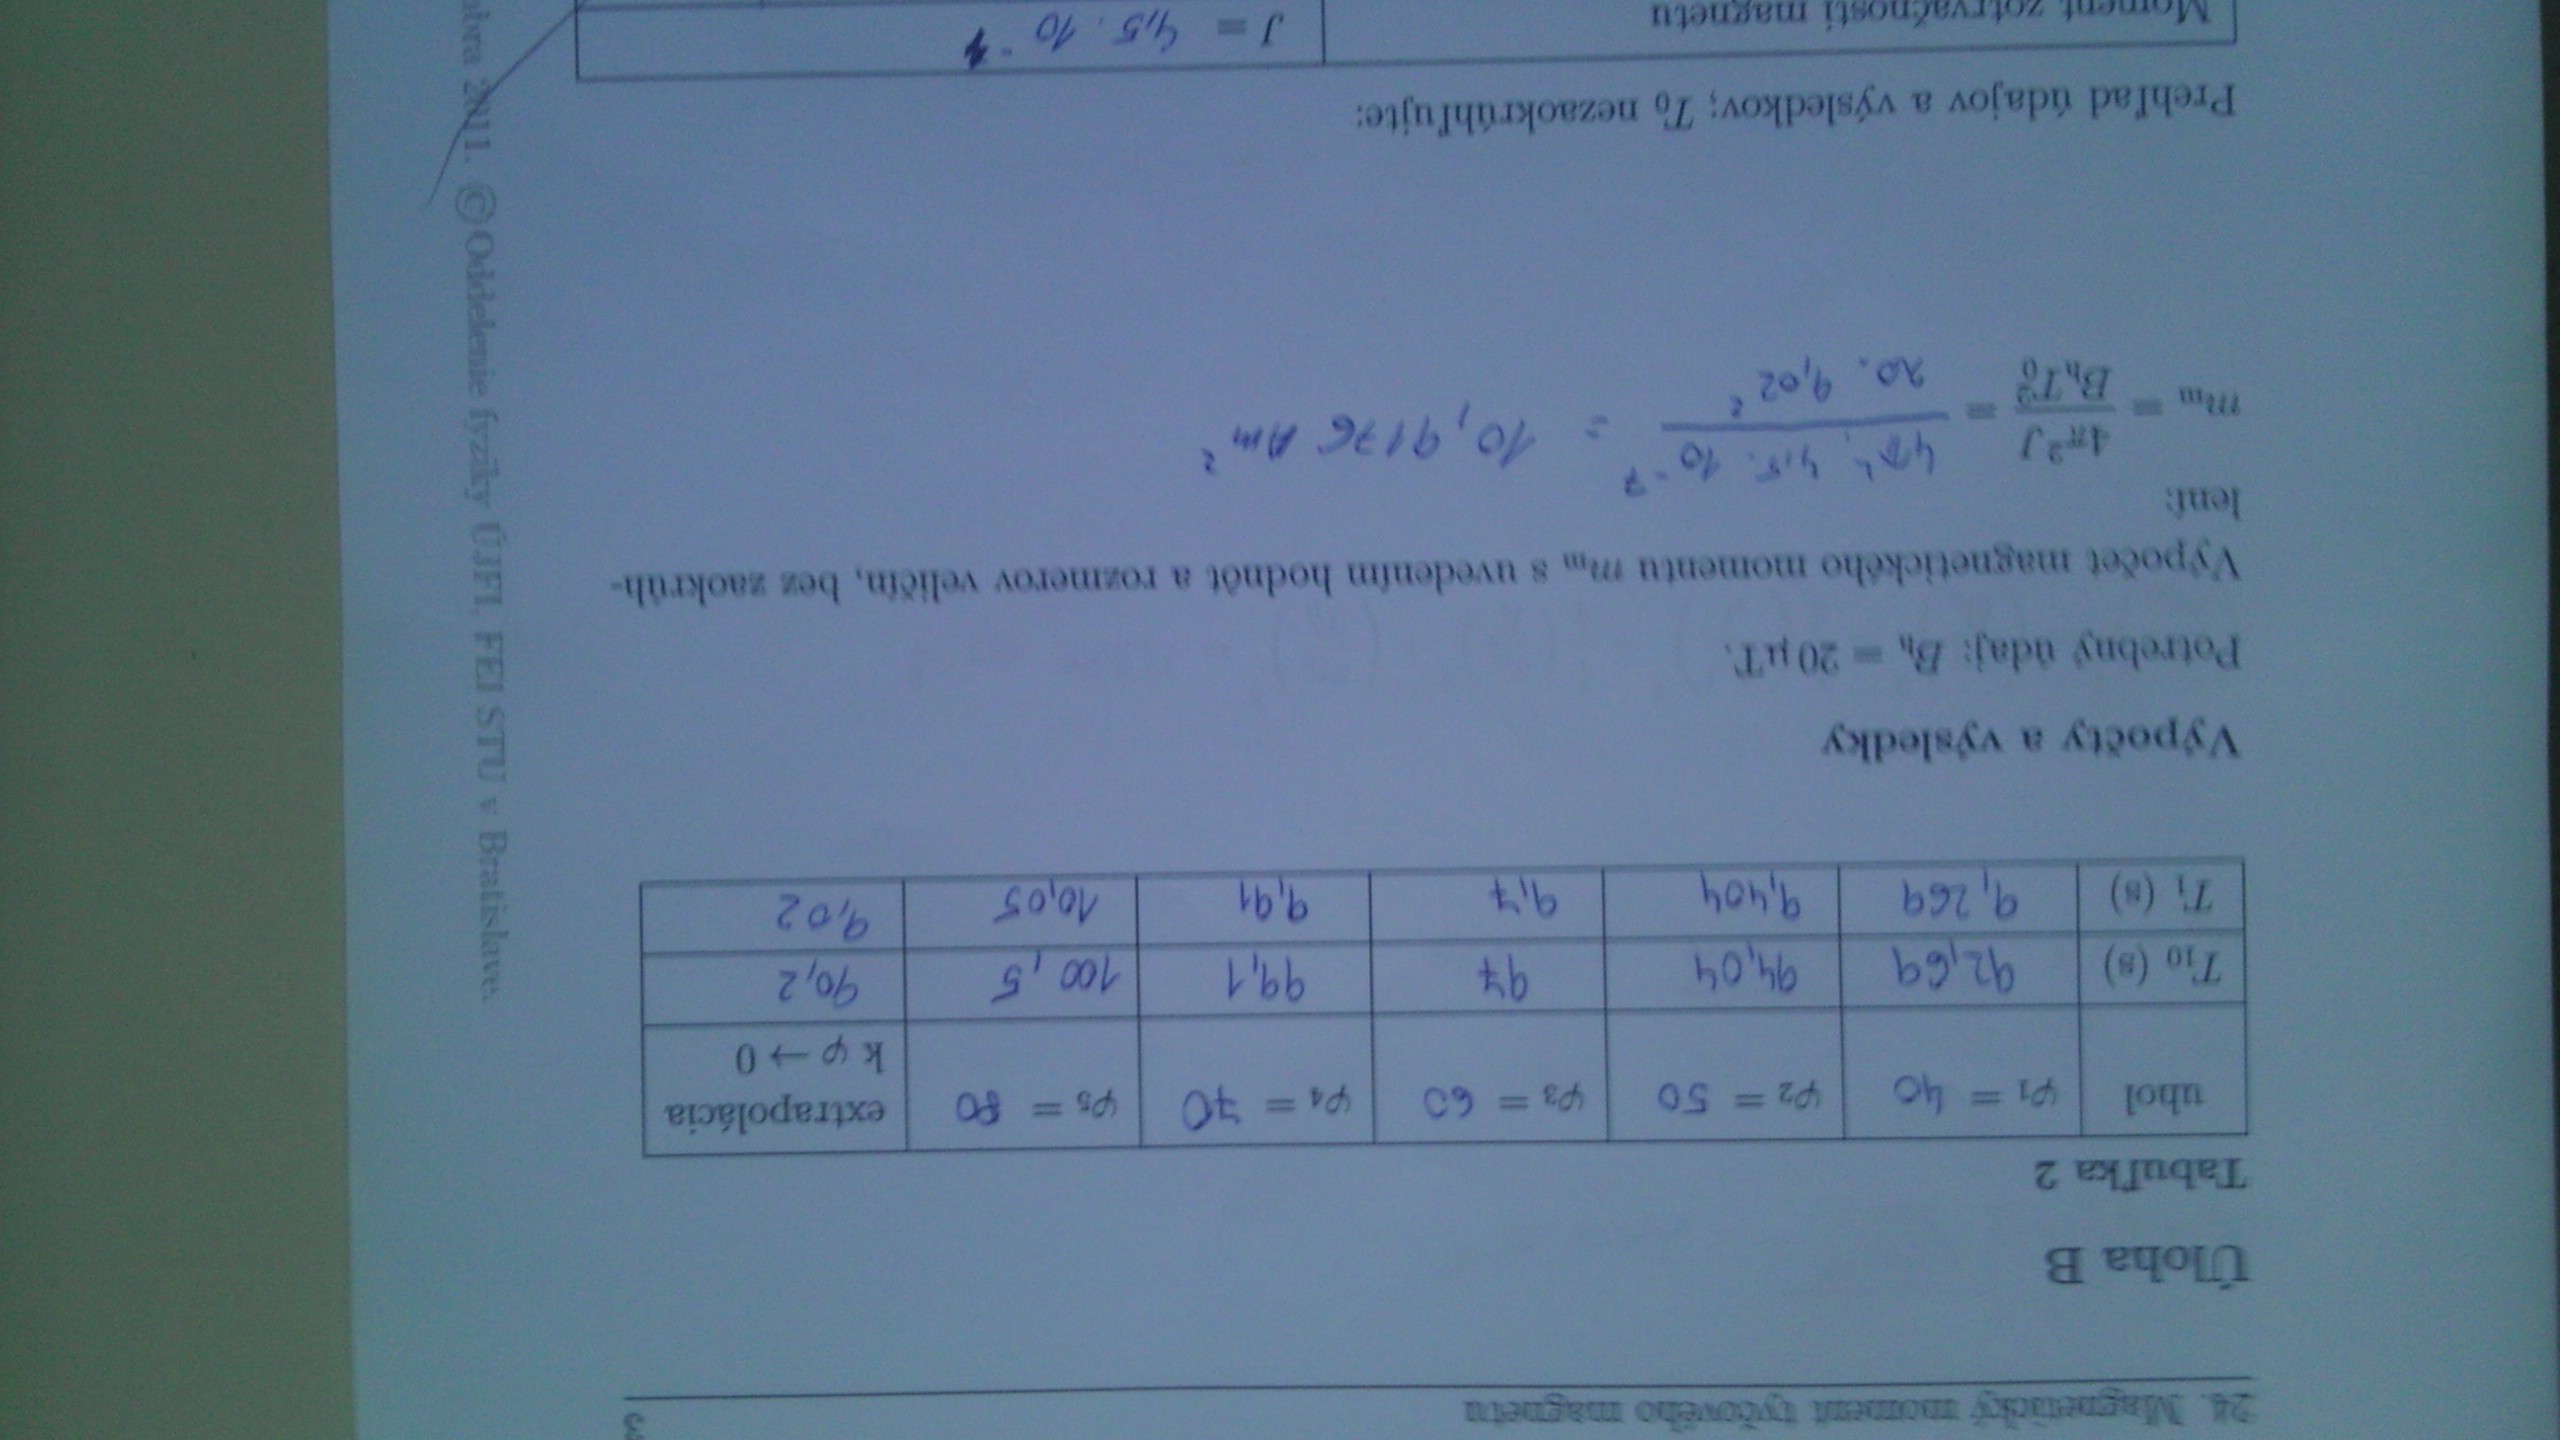 24. Magnetický moment tyčového magnetu 3
Úloha B
Tabuľka 2
uhol φ₁ = 40 φ₂ = 50 φ₃ = 60 φ₄ = 70 φ₅ = 80 extrapolácia k φ → 0
T₁₀ (s) 92,69 94,04 97 99,1 100,5 90,2
T₁ (s) 9,269 9,404 9,7 9,91 10,05 9,02
Výpočty a výsledky
Potrebný údaj: Bₕ = 20 μT.
Výpočet magnetického momentu mₘ s uvedením hodnôt a rozmerov veličín, bez zaokrúh-
lení:
mₘ = 4π²J / BₕT₀² = 4π². 4,5. 10⁻⁷ / 20. 9,02² = 10,9176 Am²
Prehľad údajov a výsledkov; T₀ nezaokrúhľujte:
Moment zotrvačnosti magnetu J = 4,5. 10⁻⁷
2011. ©Oddelenie fyziky ÚJFI. FEI STU v Bratislave.